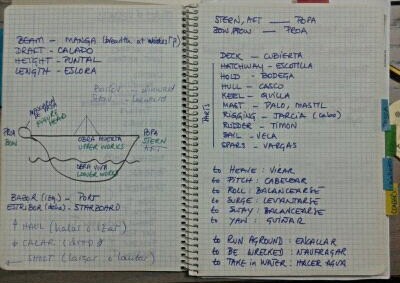 BEAM - MANGA (breadth at widest p)
DRAFT - CALADO
HEIGHT - PUNTAL
LENGTH - ESLORA
FIGURE
HEAD
PROA
BOW
OBRA MUERTA
UPPER WORKS
POPA
STERN
AFT
OBRA VIVA
LOWER WORKS
BABOR (izq.) - PORT
ESTRIBOR (dcha) - STARBOARD
HAUL (halar o izar)
CALAR (drop)
STERN, AFT — POPA
BOW/PROW — PROA
PARTS
DECK - CUBIERTA
HATCHWAY - ESCOTILLA
HOLD - BODEGA
HULL - CASCO
KEEL - QUILLA
MAST - PALO, MASTIL
RIGGING - JARCIA (cabo)
RUDDER - TIMON
SAIL - VELA
SPARS - VARGAS
to HEAVE: VIRAR
to PITCH: CABECEAR
to ROLL: BALANCEARSE
to SURGE: LEVANTARSE
to SWAY: BALANCEARSE
to YAW: GUIÑAR
to RUN AGROUND: ENCALLAR
to BE WRECKED: NAUFRAGAR
to TAKE in WATER: HACER AGUA